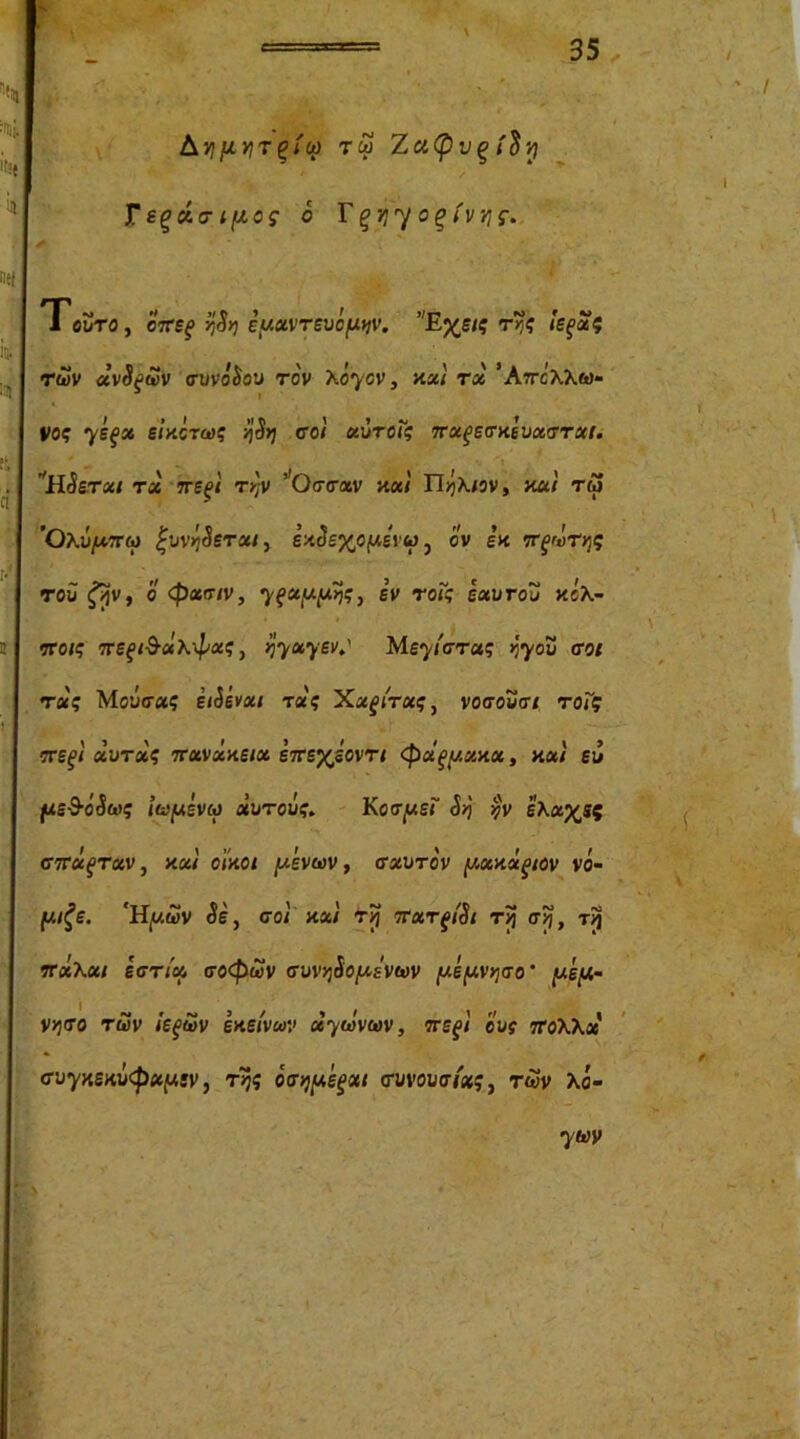 35
Δημητρίῳ τῷ Ζαφυρίδῃ
Γεράσιμος ὁ Γρηγορίνης.
Τοῦτο, ὅπερ ἤδη ἐμαντευόμην. Ἔχεις τῆς ἱερᾶς
τῶν ἀνδρῶν συνόδου τὸν λόγον, καὶ τὰ Ἀπόλλω-
νος γέρα εἰκότως ἤδη σοὶ αὐτοῖς παρεσκέυασται.
Ἥδεται τὰ περὶ τὴν Ὄσσαν καὶ Πήλιον, καὶ τῷ
Ὀλύμπῳ ξυνήδεται, ἐκδεχομένῳ, ὃν ἐκ πρώτης
τοῦ ζῆν, ὅ φασιν, γραμμῆς, ἐν τοῖς ἑαυτοῦ κόλ-
ποις περιθάλψας, ἤγαγεν. Μεγίστας ἡγοῦ σοι
τὰς Μούσας ἐιδέναι τὰς Χαρίτας, νοσοῦσι τοῖς
περὶ ἀυτὰς πανάκεια ἐπεχέοντι φάρμακα, καὶ εὐ
μεθόδως ἰωμένῳ ἀυτούς. Κοσμεῖ δὴ ἣν ἔλαχες
σπάρταν, καὶ οἴκοι μένων, σαυτὸν μακάριον νό-
μιζε. Ἡμῶν δὲ, σοὶ καὶ τῇ πατρίδι τῇ σῇ, τῇ
πάλαι ἑστίᾳ σοφῶν συνηδομένων μέμνησο· μέμ-
νησο τῶν ἱερῶν ἐκείνων ἀγώνων, περὶ οὓς πολλὰ
συγκεκύφαμεν, τῆς ὁσημέραι συνουσίας, τῶν λό-
γων